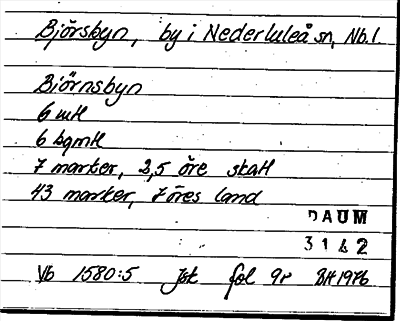 Björsbyn, by i Nederluleå sn, Nb.l.
Biörnsbyn
6 mtl
6 bgmtl
7 marker, 2,5 öre skatt
43 marker, 7 öres land
DAUM
3142
Vb 1580:5 Jbk fol 9r BH 1976